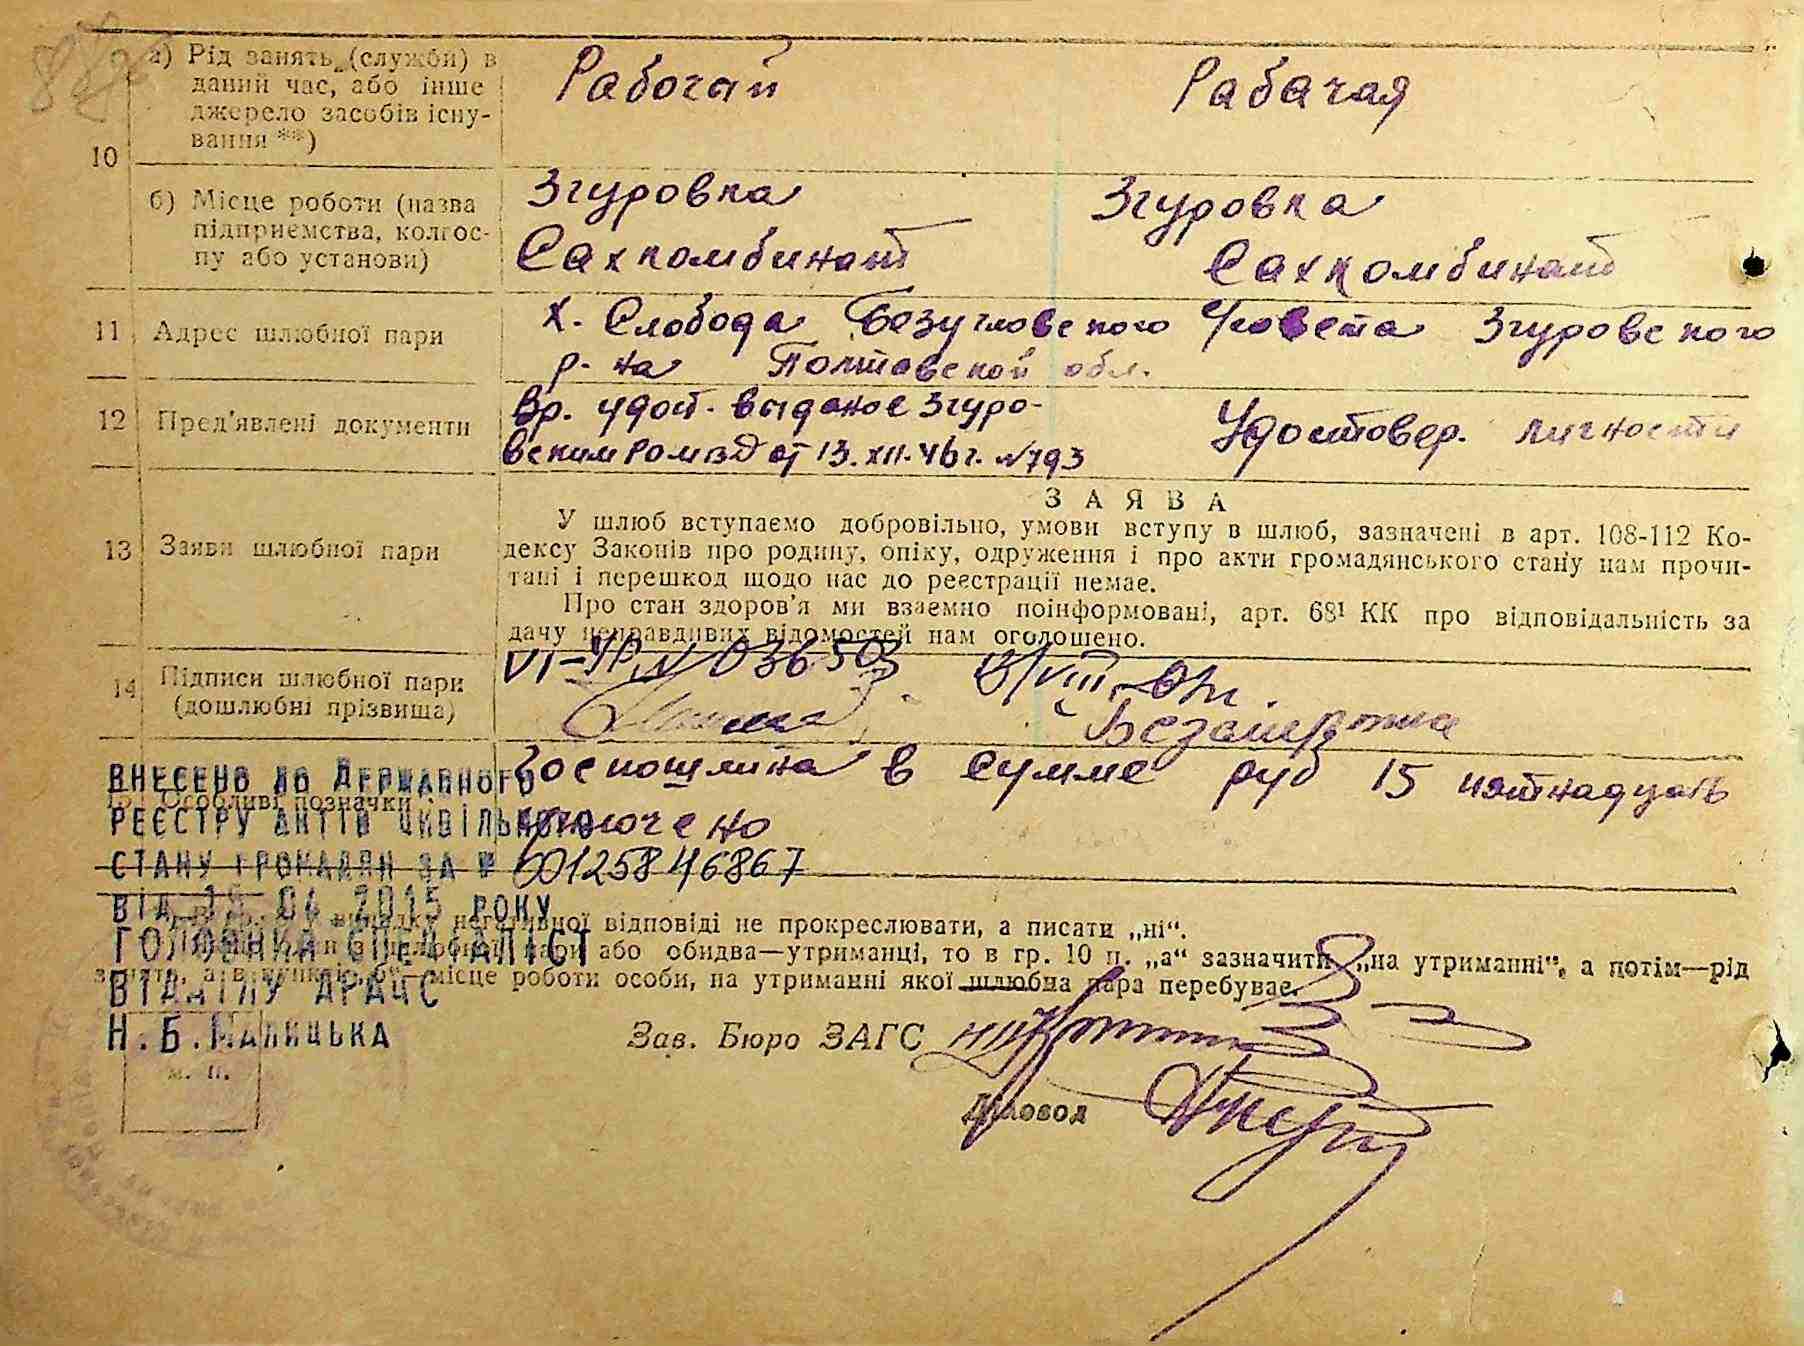 а) Рід занять (служби) в
даний час, або інше
джерело засобів існу-
вання **)
Рабочий
Рабачая
10
б) Місце роботи (назва
підприємства, колгос-
пу або установи)
Згуровка
Сахкомбинат
Згуровка
Сахкомбинат
11 Адрес шлюбної пари
х. Слобода Безугловского с/совета Згуровского
р-на Полтавской обл.
12 Пред'явлені документи
Вр. удост. выданое Згуро-
вским РОМВД от 13.XII.46г. №793
Удостовер. личности
13 Заяви шлюбної пари
ЗАЯВА
У шлюб вступаємо добровільно, умови вступу в шлюб, зазначені в арт. 108-112 Ко-
дексу Законів про родину, опіку, одруження і про акти громадянського стану нам прочи-
тані і перешкод щодо нас до реєстрації немає.
Про стан здоров'я ми взаємно поінформовані, арт. 68¹ КК про відповідальність за
дачу неправдивих відомостей нам оголошено.
14 Підписи шлюбної пари
(дошлюбні прізвища)
VI-УР № 036503
Госпошлина в сумме руб 15 пятнадцать
Особливі позначки
ВНЕСЕНО ДО ДЕРЖАВНОГО
РЕЄСТРУ АКТІВ ЦИВІЛЬНОГО
СТАНУ ГРОМАДЯН ЗА № 00125846867
ВІД 2015 РОКУ
ГОЛОВНИЙ СПЕЦІАЛІСТ
ВІДДІЛУ ДРАЦС
Н.Б.МАЛИЦЬКА
негативної відповіді не прокреслювати, а писати „ні“.
пари або обидва—утриманці, то в гр. 10 п. „а“ зазначити „на утриманні“, а потім—рід
місце роботи особи, на утриманні якої шлюбна пара перебуває.
м. п.
Зав. Бюро ЗАГС
Діловод